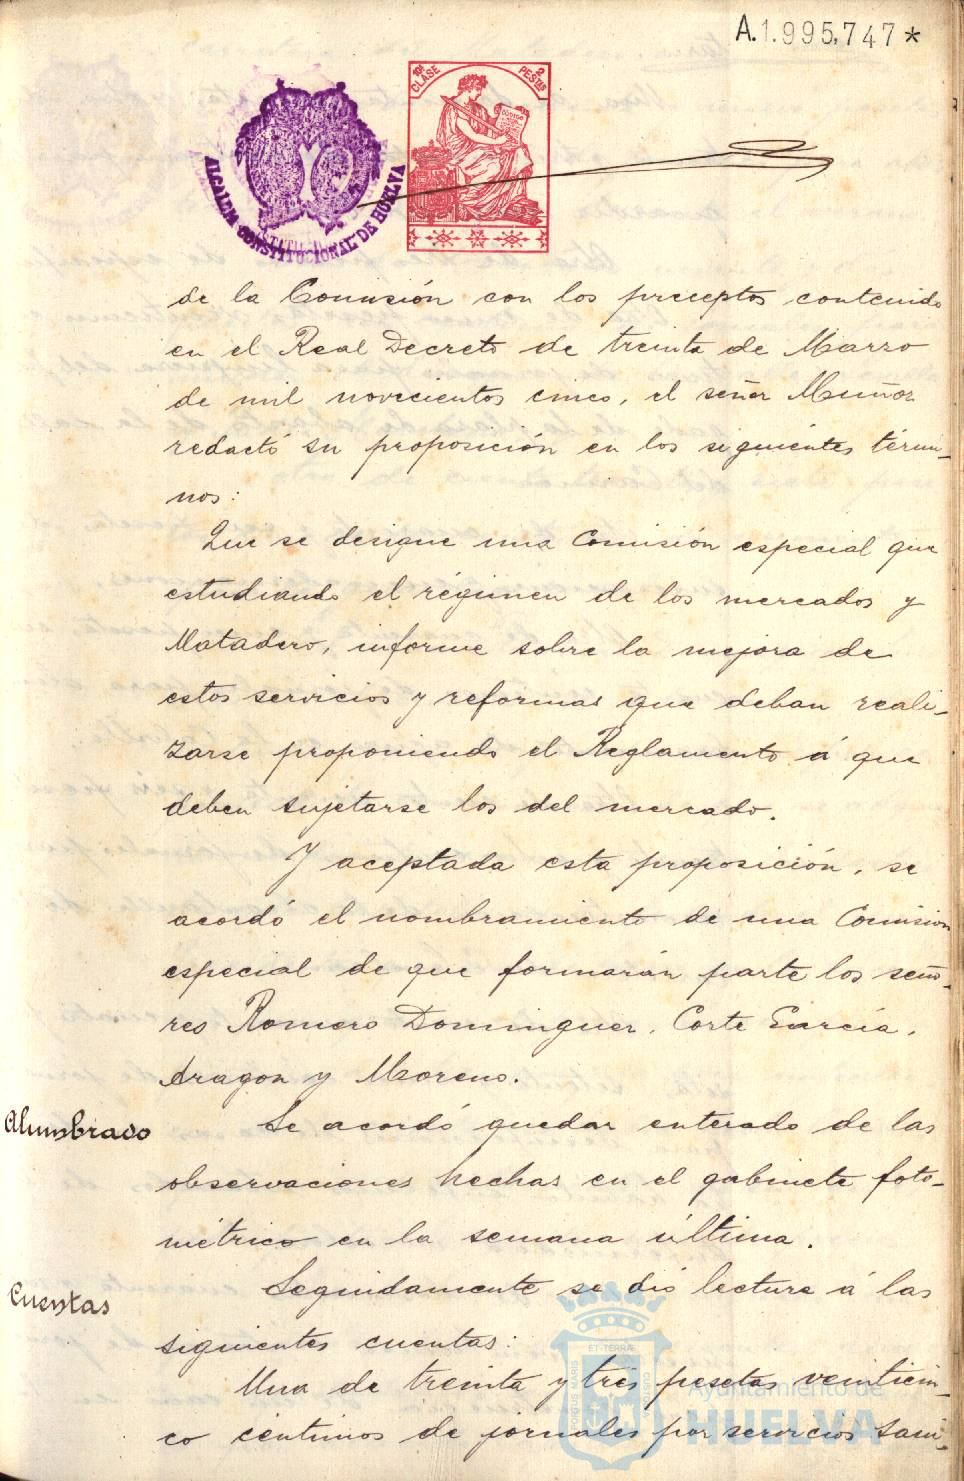 A.1.995,747*
10ª CLASE
2 PESTAS
CODIGO
ALCALDIA CONSTITUCIONAL DE HUELVA
de la Comisión con los preceptos contenido
en el Real Decreto de treinta de Marzo
de mil novecientos cinco, el señor Muñoz
redactó su proposición en los siguientes térmi-
nos:
Que se designe una Comisión especial que
estudiando el régimen de los mercados y
Matadero, informe sobre la mejora de
estos servicios y reformas que deban reali-
zarse proponiendo el Reglamento á que
deben sujetarse los del mercado.
Y aceptada esta proposición, se
acordó el nombramiento de una Comision
especial de que formarán parte los seño-
res Romero Dominguez, Corte Garcia,
Aragon y Moreno.
Alumbrado
Se acordó quedar enterado de las
observaciones hechas en el gabinete foto-
métrico en la semana última.
Cuentas
Seguidamente se dió lectura á las
siguientes cuentas:
Una de treinta y tres pesetas veinticin-
co céntimos de jornales por servicios sani-
PORTUS MARIS ET TERRAE CUSTODIA
Ayuntamiento de
HUELVA